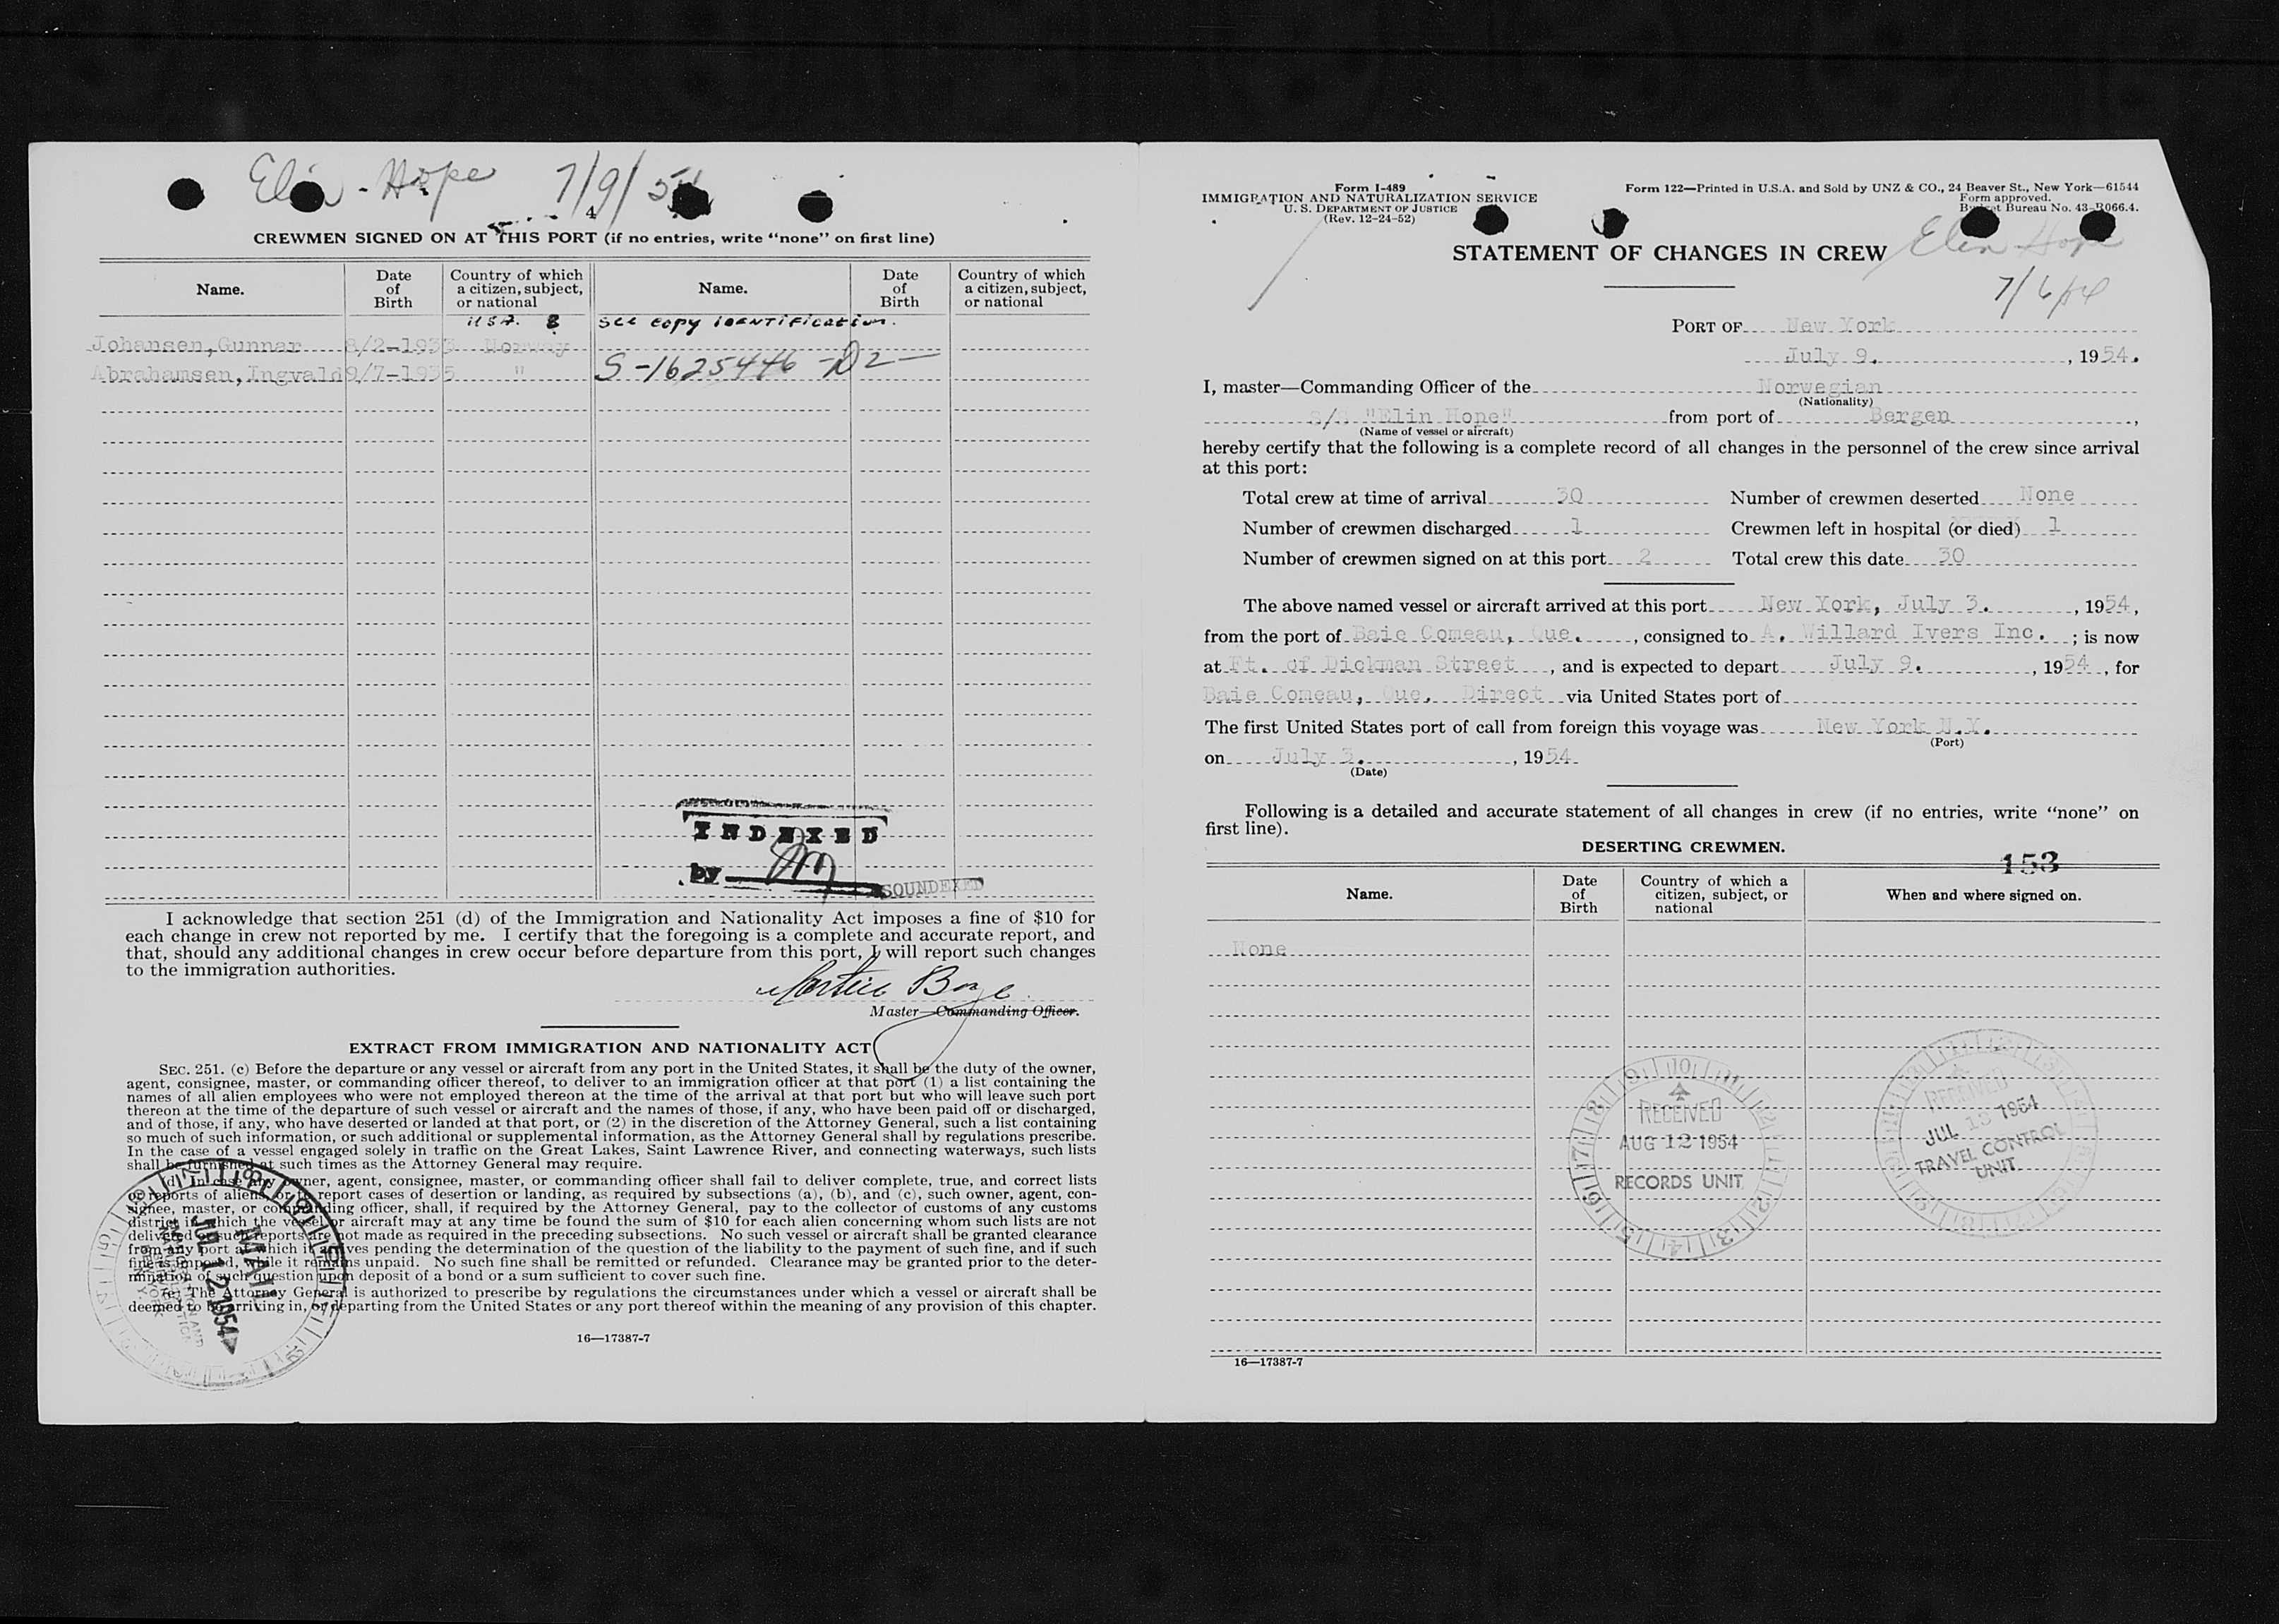 Elin - Hope 7/9/54
4
CREWMEN SIGNED ON AT THIS PORT (if no entries, write “none” on first line)
Name. Date of Birth Country of which a citizen, subject, or national Name. Date of Birth Country of which a citizen, subject, or national
U S A. B see copy IDENTIFICATION.
Johansen, Gunnar 8/2-1933 Norway
Abrahamsen, Ingvald 9/7-1935 " S-1625446-D2-
INDEXED
by
SOUNDEXED
I acknowledge that section 251 (d) of the Immigration and Nationality Act imposes a fine of $10 for
each change in crew not reported by me. I certify that the foregoing is a complete and accurate report, and
that, should any additional changes in crew occur before departure from this port, I will report such changes
to the immigration authorities.
Master—Commanding Officer.
EXTRACT FROM IMMIGRATION AND NATIONALITY ACT
SEC. 251. (c) Before the departure or any vessel or aircraft from any port in the United States, it shall be the duty of the owner,
agent, consignee, master, or commanding officer thereof, to deliver to an immigration officer at that port (1) a list containing the
names of all alien employees who were not employed thereon at the time of the arrival at that port but who will leave such port
thereon at the time of the departure of such vessel or aircraft and the names of those, if any, who have been paid off or discharged,
and of those, if any, who have deserted or landed at that port, or (2) in the discretion of the Attorney General, such a list containing
so much of such information, or such additional or supplemental information, as the Attorney General shall by regulations prescribe.
In the case of a vessel engaged solely in traffic on the Great Lakes, Saint Lawrence River, and connecting waterways, such lists
shall be furnished at such times as the Attorney General may require.
(d) In case any owner, agent, consignee, master, or commanding officer shall fail to deliver complete, true, and correct lists
or reports of aliens, or to report cases of desertion or landing, as required by subsections (a), (b), and (c), such owner, agent, con-
signee, master, or commanding officer, shall, if required by the Attorney General, pay to the collector of customs of any customs
district in which the vessel or aircraft may at any time be found the sum of $10 for each alien concerning whom such lists are not
delivered or such reports are not made as required in the preceding subsections. No such vessel or aircraft shall be granted clearance
from any port at which it arrives pending the determination of the question of the liability to the payment of such fine, and if such
fine is imposed, while it remains unpaid. No such fine shall be remitted or refunded. Clearance may be granted prior to the deter-
mination of such question upon deposit of a bond or a sum sufficient to cover such fine.
(e) The Attorney General is authorized to prescribe by regulations the circumstances under which a vessel or aircraft shall be
deemed to be arriving in, or departing from the United States or any port thereof within the meaning of any provision of this chapter.
MAIL
JUL 12 1954
16—17387-7
Form I-489
IMMIGRATION AND NATURALIZATION SERVICE
U. S. DEPARTMENT OF JUSTICE
(Rev. 12-24-52)
Form 122—Printed in U.S.A. and Sold by UNZ & CO., 24 Beaver St., New York—61544
Form approved.
Budget Bureau No. 43-R066.4.
STATEMENT OF CHANGES IN CREW
Elin Hope
PORT OF New York
July 9. , 1954.
I, master—Commanding Officer of the Norwegian
(Nationality)
S/S "Elin Hope" from port of Bergen ,
(Name of vessel or aircraft)
hereby certify that the following is a complete record of all changes in the personnel of the crew since arrival
at this port:
Total crew at time of arrival 30 Number of crewmen deserted None
Number of crewmen discharged 1 Crewmen left in hospital (or died) 1
Number of crewmen signed on at this port 2 Total crew this date 30
The above named vessel or aircraft arrived at this port New York, July 3. , 1954,
from the port of Baie Comeau, Que. , consigned to A. Willard Ivers Inc. ; is now
at Ft. of Dickman Street , and is expected to depart July 9. , 1954 , for
Baie Comeau, Que. Direct via United States port of
The first United States port of call from foreign this voyage was New York N.Y.
(Port)
on July 3. , 1954
(Date)
Following is a detailed and accurate statement of all changes in crew (if no entries, write “none” on
first line).
DESERTING CREWMEN.
153
Name. Date of Birth Country of which a citizen, subject, or national When and where signed on.
None
RECEIVED
AUG 12 1954
RECORDS UNIT
RECEIVED
JUL 13 1954
TRAVEL CONTROL
UNIT
16—17387-7